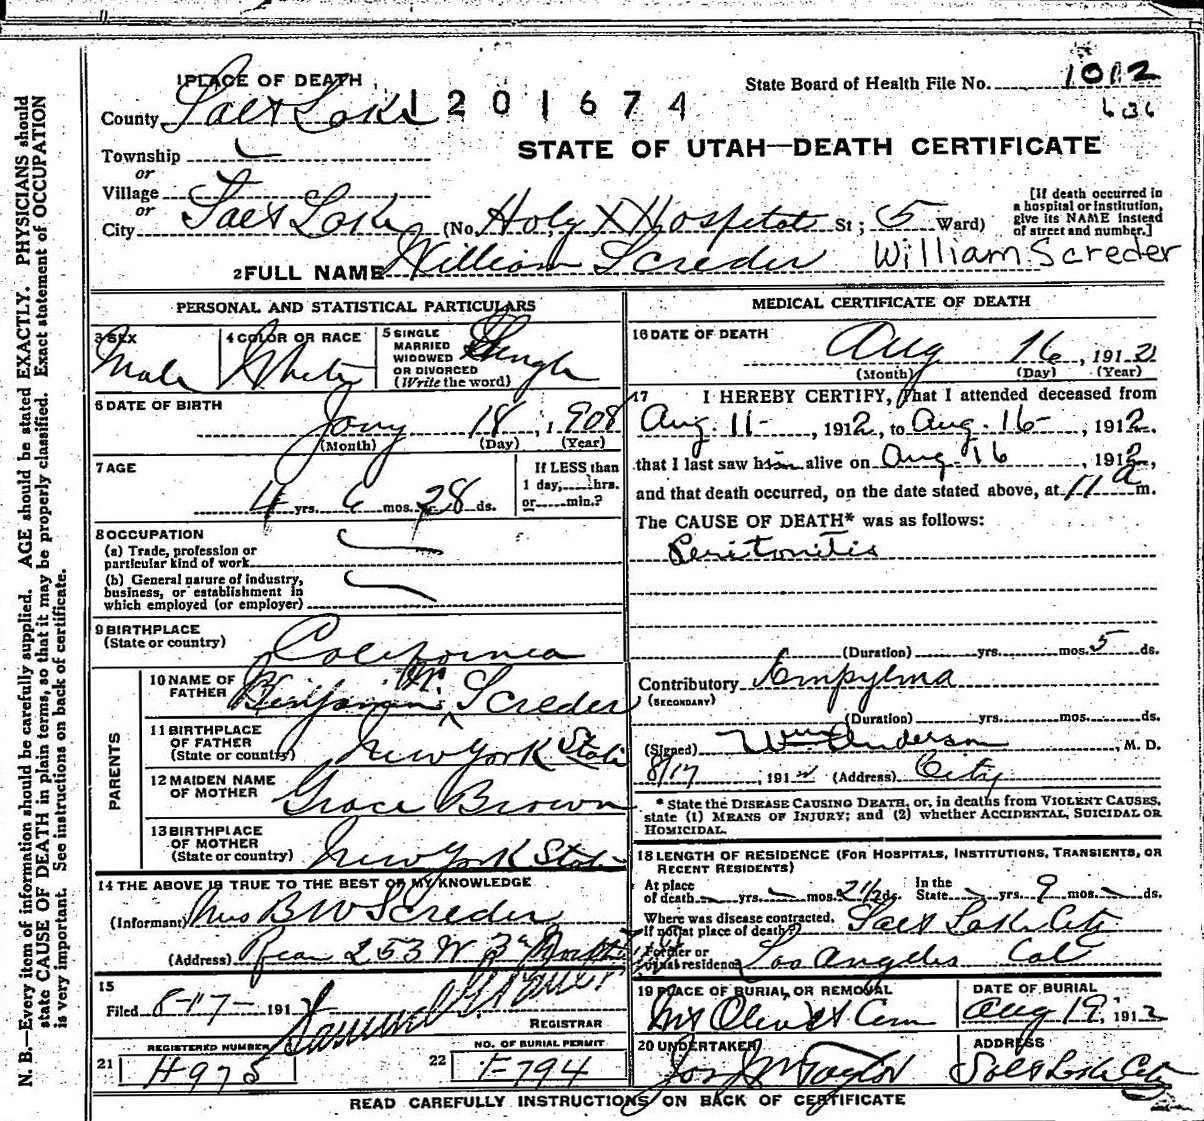 1 PLACE OF DEATH
State Board of Health File No. 1012
County Salt Lake 1201674
636
Township
STATE OF UTAH—DEATH CERTIFICATE
or
Village
or
City Salt Lake (No. Holy X Hospital St; 5 Ward)
[If death occurred in a hospital or institution, give its NAME instead of street and number.]
2 FULL NAME William Screder William Screder
PERSONAL AND STATISTICAL PARTICULARS
3 SEX Male
4 COLOR OR RACE White
5 SINGLE MARRIED WIDOWED OR DIVORCED (Write the word) Single
6 DATE OF BIRTH
Jany 18, 1908
(Month) (Day) (Year)
7 AGE
4 yrs. 6 mos. 28 ds.
If LESS than 1 day,....hrs. or....min.?
8 OCCUPATION
(a) Trade, profession or particular kind of work
(b) General nature of industry, business, or establishment in which employed (or employer)
9 BIRTHPLACE
(State or country) California
PARENTS
10 NAME OF FATHER Benjamin W Screder
11 BIRTHPLACE OF FATHER (State or country) New York State
12 MAIDEN NAME OF MOTHER Grace Brown
13 BIRTHPLACE OF MOTHER (State or country) New York State
14 THE ABOVE IS TRUE TO THE BEST OF MY KNOWLEDGE
(Informant) Mrs B W Screder
(Address) Rear 253 W 3d North
15
Filed 8-17-191
REGISTRAR
REGISTERED NUMBER
21 H975
NO. OF BURIAL PERMIT
22 F794
MEDICAL CERTIFICATE OF DEATH
16 DATE OF DEATH
Aug 16, 1912
(Month) (Day) (Year)
17 I HEREBY CERTIFY, That I attended deceased from
Aug. 11-, 1912, to Aug. 16-, 1912.
that I last saw him alive on Aug. 16, 1912,
and that death occurred, on the date stated above, at 11 a m.
The CAUSE OF DEATH* was as follows:
Peritonitis
(Duration) yrs. mos. 5 ds.
Contributory Empyema
(SECONDARY)
(Duration) yrs. mos. ds.
(Signed) Wm Anderson, M. D.
8/17, 1912 (Address) City
* State the DISEASE CAUSING DEATH, or, in deaths from VIOLENT CAUSES, state (1) MEANS OF INJURY; and (2) whether ACCIDENTAL, SUICIDAL OR HOMICIDAL.
18 LENGTH OF RESIDENCE (FOR HOSPITALS, INSTITUTIONS, TRANSIENTS, OR RECENT RESIDENTS)
At place of death yrs. mos. 2 1/2 ds. In the State yrs. 9 mos. ds.
Where was disease contracted, if not at place of death? Salt Lake City
Former or usual residence Los Angeles Cal
19 PLACE OF BURIAL OR REMOVAL
Mt Olivet Cem
DATE OF BURIAL
Aug 19, 1912
20 UNDERTAKER
Jos Wm Taylor
ADDRESS
Salt Lake City
READ CAREFULLY INSTRUCTIONS ON BACK OF CERTIFICATE
N. B.—Every item of information should be carefully supplied. AGE should be stated EXACTLY. PHYSICIANS should
state CAUSE OF DEATH in plain terms, so that it may be properly classified. Exact statement of OCCUPATION
is very important. See instructions on back of certificate.